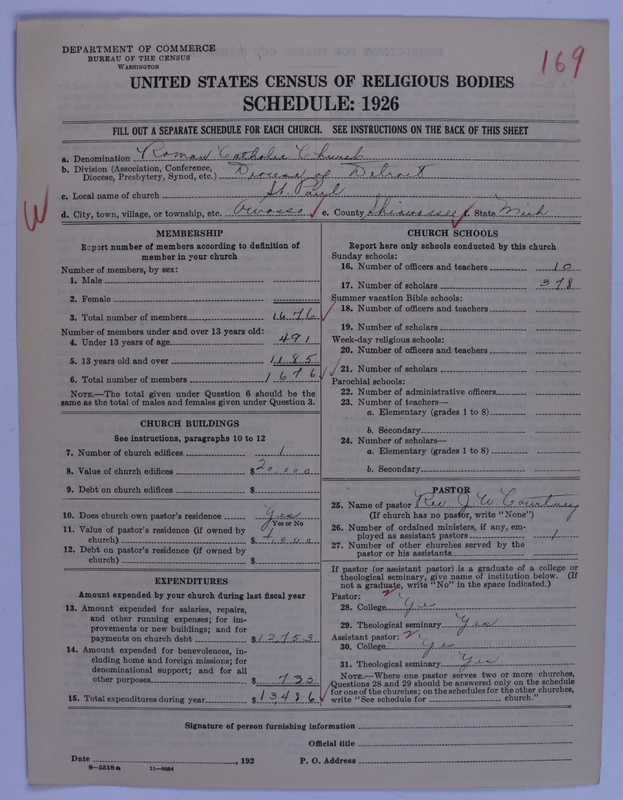 DEPARTMENT OF COMMERCE
BUREAU OF THE CENSUS
WASHINGTON
169
UNITED STATES CENSUS OF RELIGIOUS BODIES
SCHEDULE: 1926
FILL OUT A SEPARATE SCHEDULE FOR EACH CHURCH. SEE INSTRUCTIONS ON THE BACK OF THIS SHEET
a. Denomination Roman Catholic Church
b. Division (Association, Conference, Diocese, Presbytery, Synod, etc.) Diocese of Detroit
c. Local name of church St. Paul
W
d. City, town, village, or township, etc. Owosso e. County Shiawassee f. State Mich
MEMBERSHIP
Report number of members according to definition of
member in your church
Number of members, by sex:
1. Male
2. Female
3. Total number of members 1676
Number of members under and over 13 years old:
4. Under 13 years of age 491
5. 13 years old and over 1185
6. Total number of members 1676
NOTE.—The total given under Question 6 should be
same as the total of males and females given under Question 3.
CHURCH BUILDINGS
See instructions, paragraphs 10 to 12
7. Number of church edifices 1
8. Value of church edifices $20,000
9. Debt on church edifices $
10. Does church own pastor's residence Yes
Yes or No
11. Value of pastor's residence (if owned by
church) $ ,000
12. Debt on pastor's residence (if owned by
church) $
EXPENDITURES
Amount expended by your church during last fiscal year
13. Amount expended for salaries, repairs,
and other running expenses; for im-
provements or new buildings; and for
payments on church debt $12,753
14. Amount expended for benevolences, in-
cluding home and foreign missions; for
denominational support; and for all
other purposes $733
15. Total expenditures during year $13,486
CHURCH SCHOOLS
Report here only schools conducted by this church
Sunday schools:
16. Number of officers and teachers 10
17. Number of scholars 378
Summer vacation Bible schools:
18. Number of officers and teachers
19. Number of scholars
Week-day religious schools:
20. Number of officers and teachers
21. Number of scholars
Parochial schools:
22. Number of administrative officers
23. Number of teachers—
a. Elementary (grades 1 to 8)
b. Secondary
24. Number of scholars—
a. Elementary (grades 1 to 8)
b. Secondary
PASTOR
25. Name of pastor Rev. J. W. Courtney
(If church has no pastor, write "None")
26. Number of ordained ministers, if any, em-
ployed as assistant pastors 1
27. Number of other churches served by the
pastor or his assistants
If pastor (or assistant pastor) is a graduate of a college or
theological seminary, give name of institution below. (If
not a graduate, write "No" in the space indicated.)
Pastor:
28. College Yes
29. Theological seminary Yes
Assistant pastor:
30. College Yes
31. Theological seminary Yes
NOTE.—Where one pastor serves two or more churches,
Questions 28 and 29 should be answered only on the schedule
for one of the churches; on the schedules for the other churches,
write "See schedule for church."
Signature of person furnishing information
Official title
Date , 192 P. O. Address
8—5518 a 11—9064